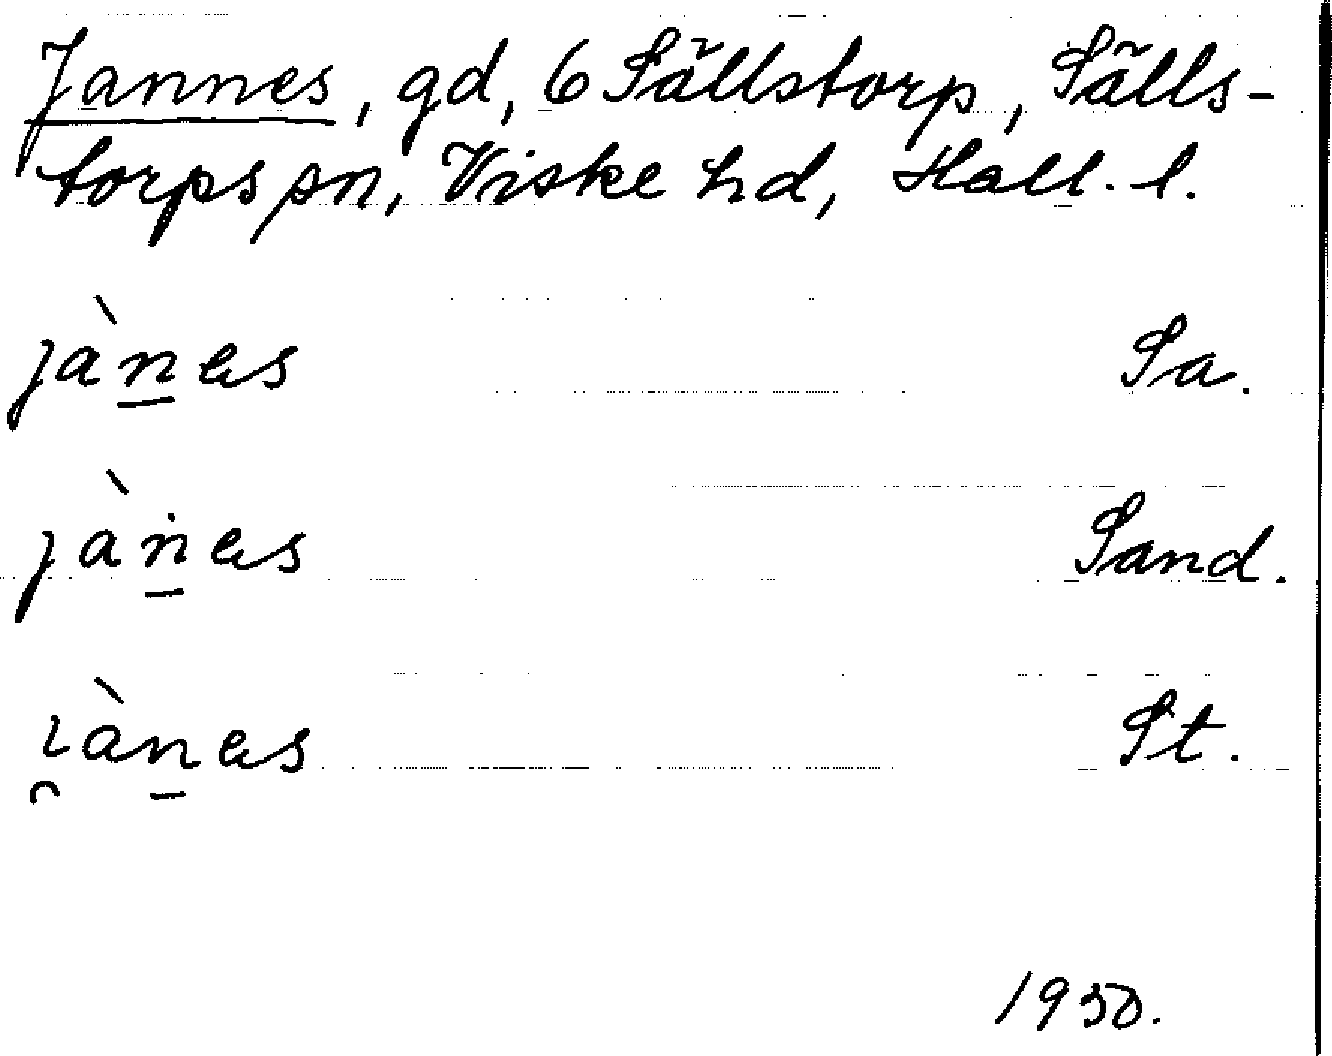 Jannes, gd, 6 Sällstorp, Sälls-
torps sn, Viske hd, Hall. l.
jànes Sa.
jànes Sand.
i̯ànes St.
1950.